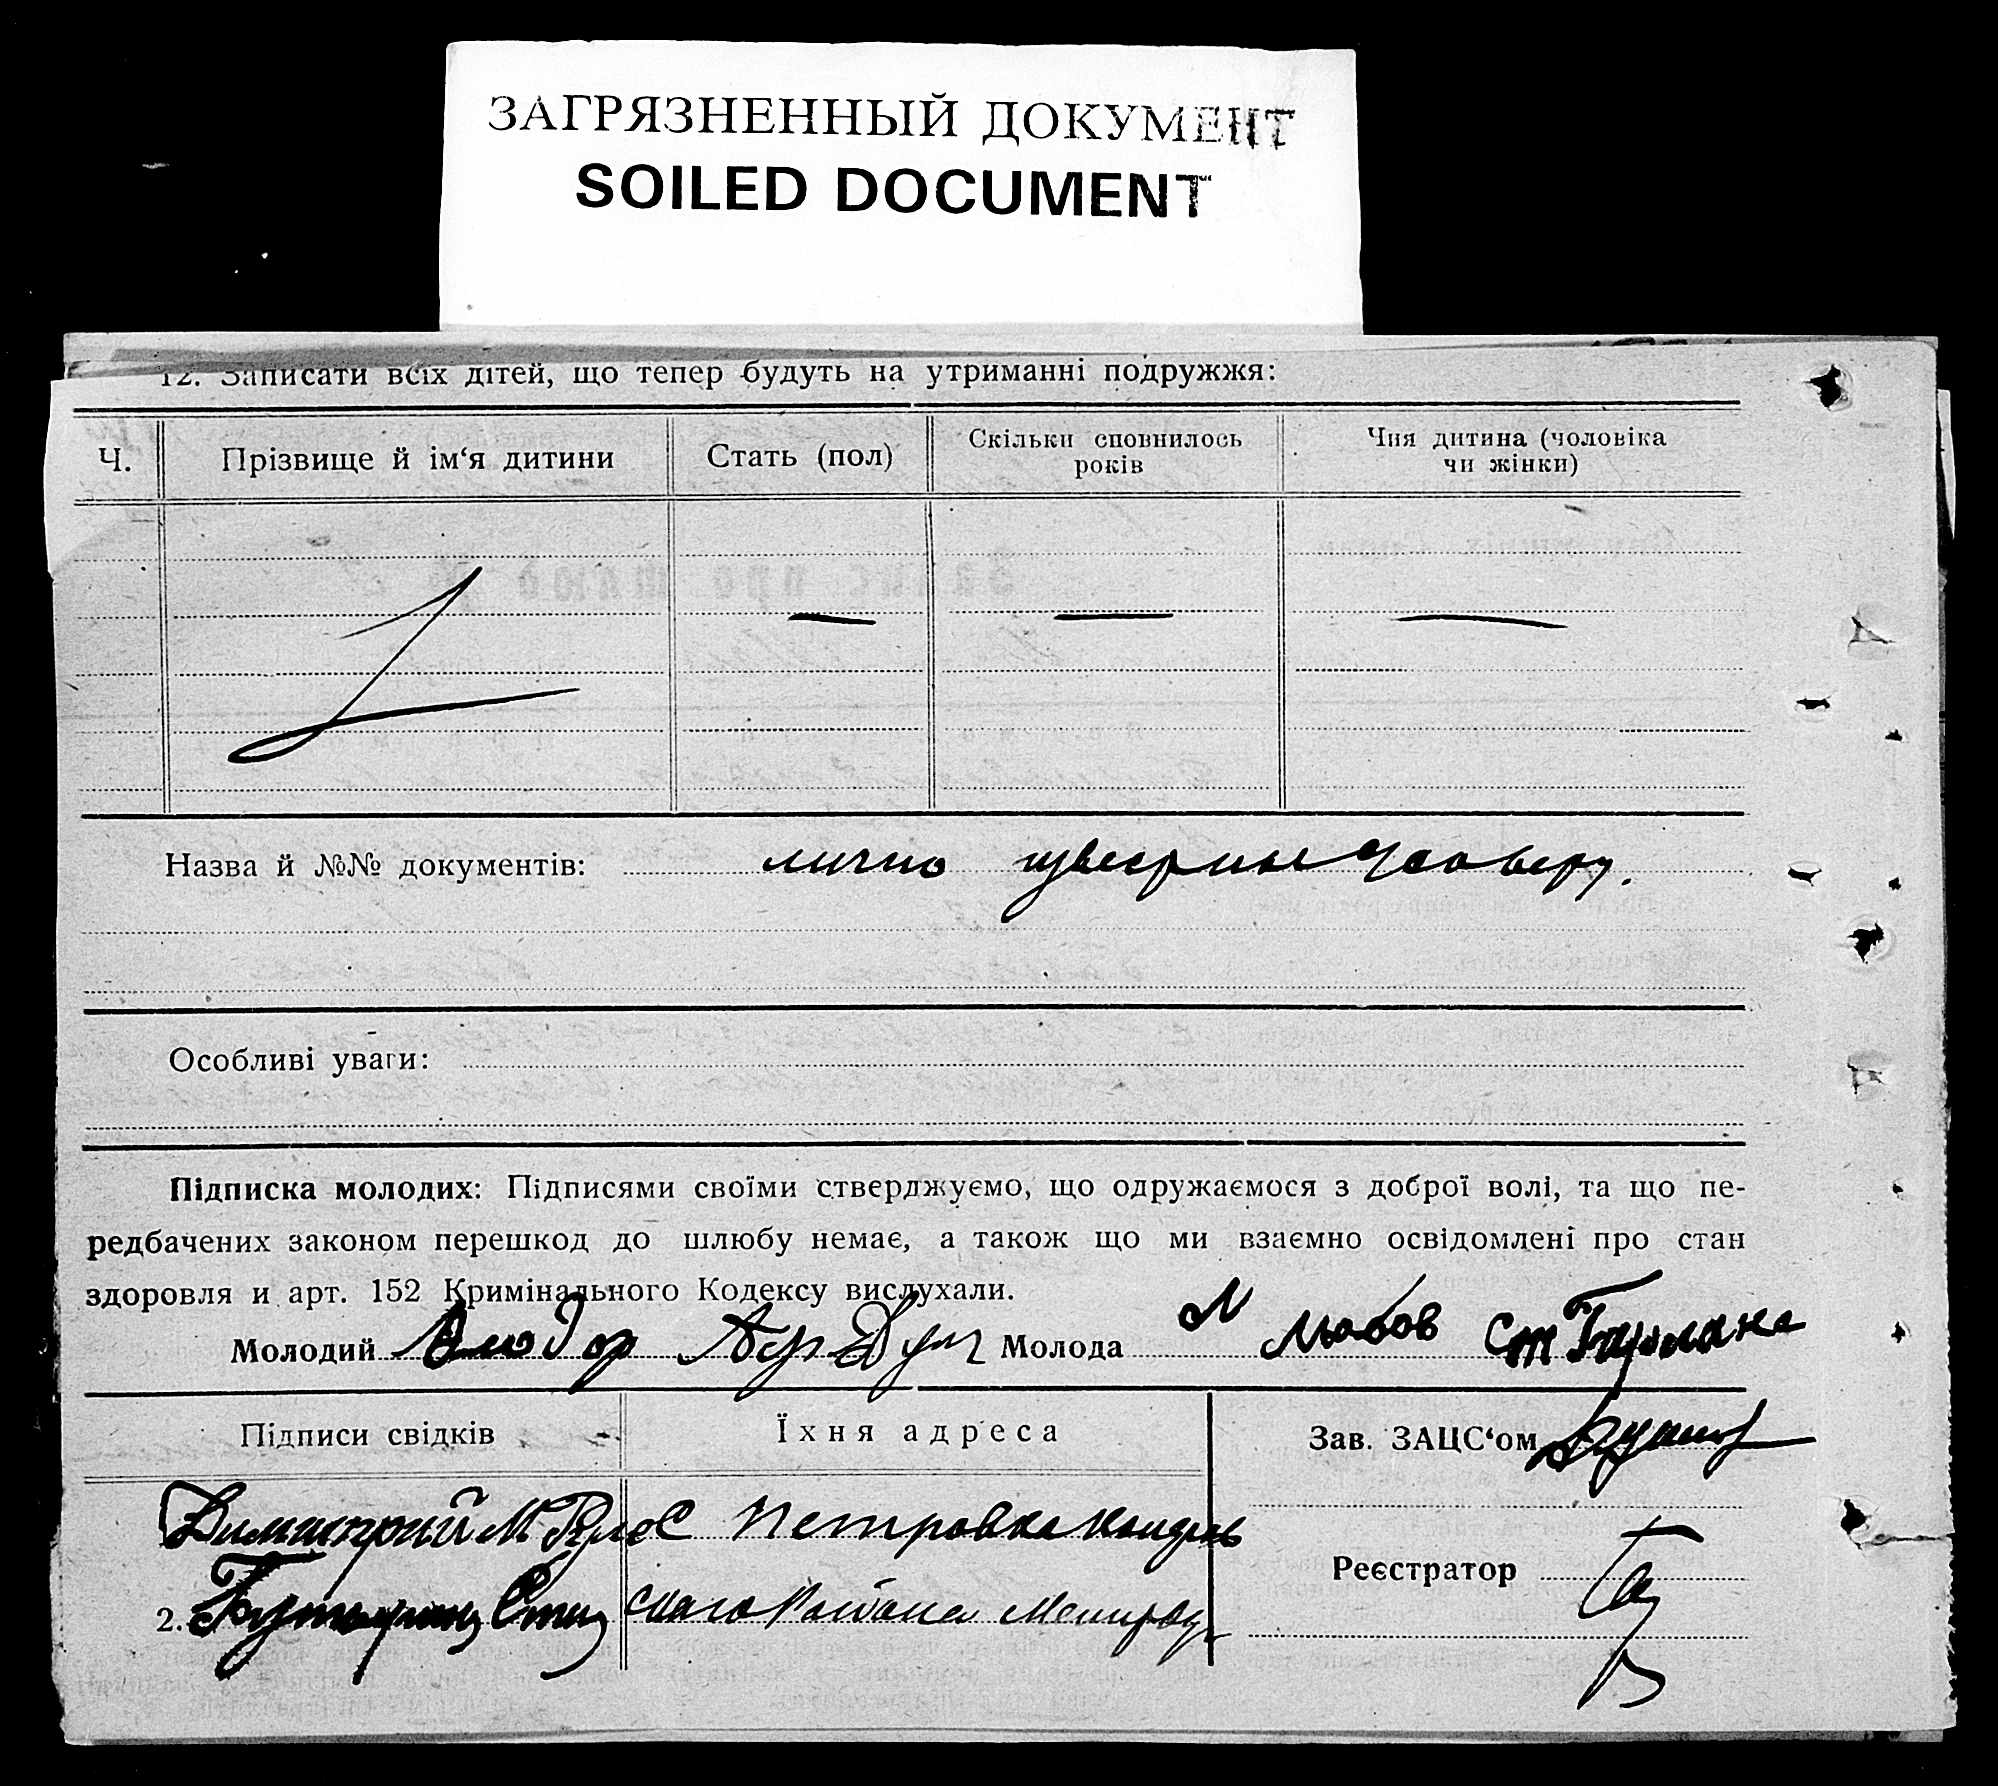 ЗАГРЯЗНЕННЫЙ ДОКУМЕНТ
SOILED DOCUMENT
12. Записати всіх дітей, що тепер будуть на утриманні подружжя:
Ч. Прізвище й ім‘я дитини Стать (пол) Скільки сповнилось років Чия дитина (чоловіка чи жінки)
Назва й №№ документів: лично
Особливі уваги:
Підписка молодих: Підписями своїми стверджуємо, що одружаємося з доброї волі, та що пе-
редбачених законом перешкод до шлюбу немає, а також що ми взаємно освідомлені про стан
здоровля и арт. 152 Кримінального Кодексу вислухали.
Молодий Молода Любов
Підписи свідків Їхня адреса Зав. ЗАЦС‘ом
Димитрий М Петровка
Реєстратор
2.